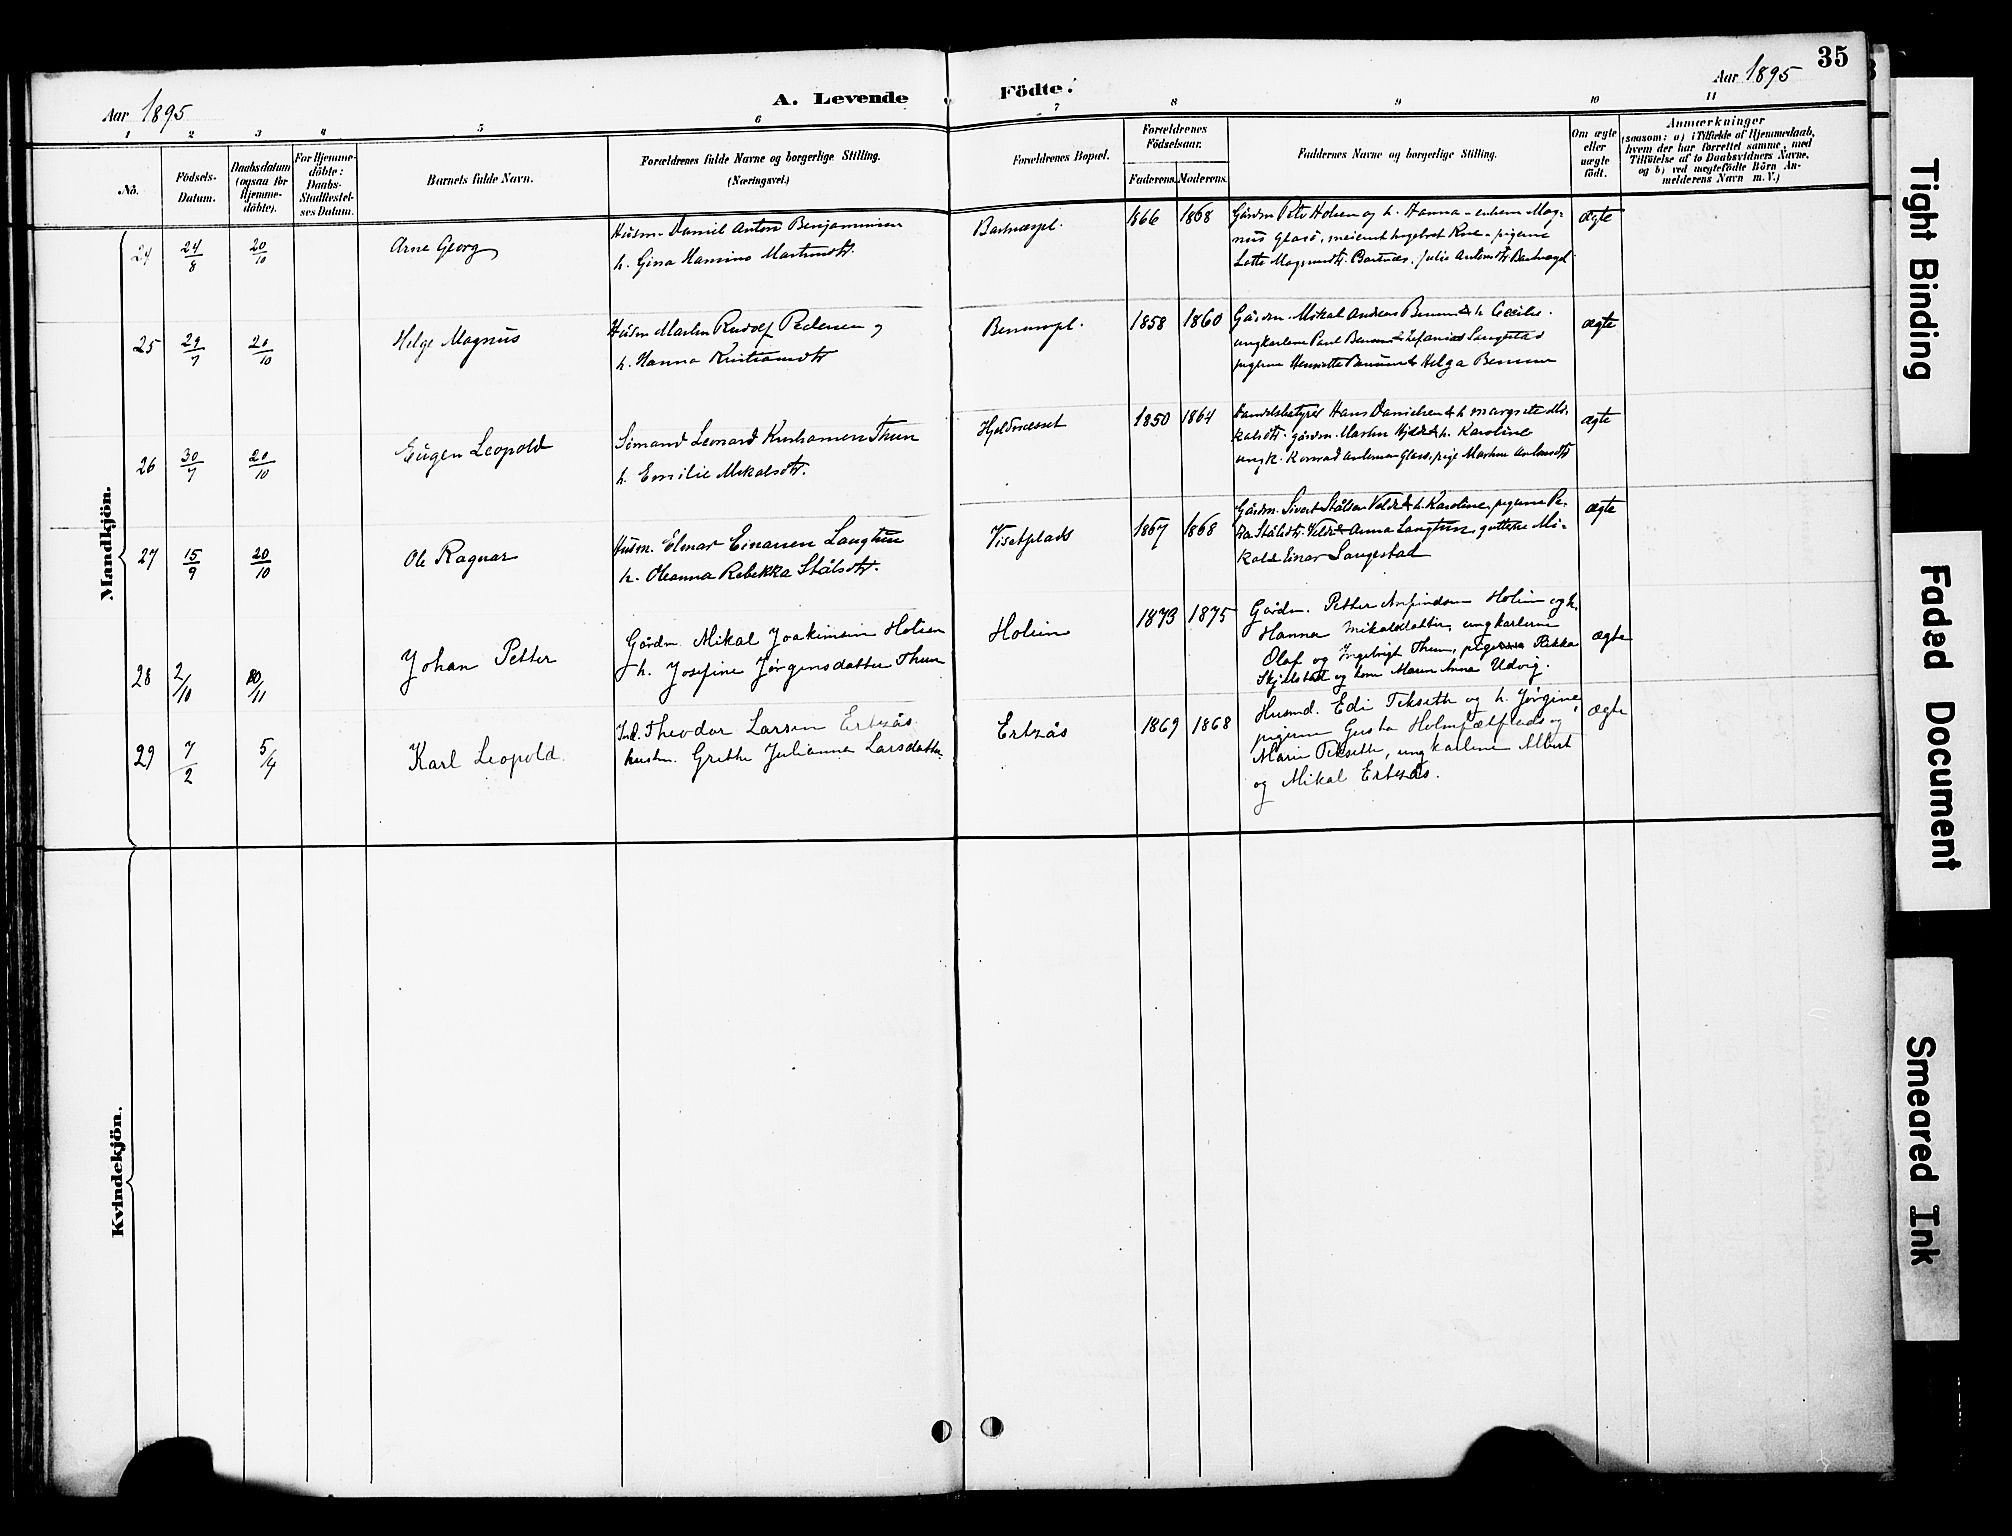 35
Aar 1895
A. Levende Födte.
Aar 1895
1 2 3 4 5 6 7 8 9 10 11
Nö.
Födsels-
Datum.
Daabsdatum
(ogsaa for
Hjemme-
döbte).
For Hjemme-
döbte:
Daabs-
Stadfæstel-
ses Datum.
Barnets fulde Navn.
Forældrenes fulde Navne og borgerlige Stilling.
(Næringsvei.)
Forældrenes Bopæl.
Forældrenes
Födselsaar.
Faderens. Moderens.
Faddernes Navne og borgerlige Stilling.
Om ægte
eller
uægte
födt.
Anmærkninger
(saasom: a) i Tilfælde af Hjemmedaab,
hvem der har forrettet samme, med
Tilföielse af to Daabsvidners Navne,
og b) ved uægtefödte Börn An-
melderens Navn m. V.)
Mandkjön.
24 24/8 20/10 Arne Georg
Husm. Daniel Anton Benjaminsen
h. Gina Hansine Martinsdtr.
Bartnæspl. 1866 1868
Gårdm Petr Holsen og h. Hanna - enkem Mag-
nus Glasö, meierist Ingebret - pigerne
Lotte Magnusdtr. Bartnæs, Julie Antonsdtr
ægte
25 29/7 20/10 Helge Magnus
Husm Martin Rudolf Pedersen og
h. Hanna Kristiansdtr
Benumspl. 1858 1860
Gårdm. Mikal Andreas Benum & h. Cecilie.
ungkarlene Paul Benum & Langestad
pigerne Henriette Benum & Helga Benum
ægte
26 30/7 20/10 Eugen Leopold
Sömand Leonard Kristiansen Thun
h. Emilie Mikalsdtr.
Hjeldnesset 1850 1864
Handelsbetyrer Hans Danielsen & h Margrete Mi-
kalsdtr. gårdm. Martin & h. Karoline
ungk. Konrad Antonsen Glasö, pige
ægte
27 15/9 20/10 Ole Ragnar
Husm. Elmar Einarsen Langtun
h. Oleanna Rebekka Stålsdtr.
Visetplads 1867 1868
Gårdm. Sivert Stålsen & h. Karoline, pigerne Pe-
tra Stålsdtr. & Anna Langtun, guttene Mi-
kal & Einar Langestad
ægte
28 2/10 /11 Johan Petter
Gårdm Mikal Joakimsen Holien
h. Josefine Jørgensdatter Thun
Holien 1873 1875
Gårdm. Petter Arnfindsen Holien og h.
Hanna Mikalsdatter, ungkarlene
Olaf og Ingebrigt Thun, pigerne Rikka
Skjelstad og Maren Anna Udvig.
ægte
29 7/2 5/4 Karl Leopold.
Ind. Theodor Larsen Ertsås
hustru. Grethe Julianna Larsdatter
Ertsås 1869 1868
Husmd. Edi Tiksæth og h. Jørgine,
pigerne Gusta og
Marie Tiksæth, ungkarlene Albert
og Mikal Ertsås.
ægte
Kvindekjön.
Tight Binding
Faded Document
Smeared Ink